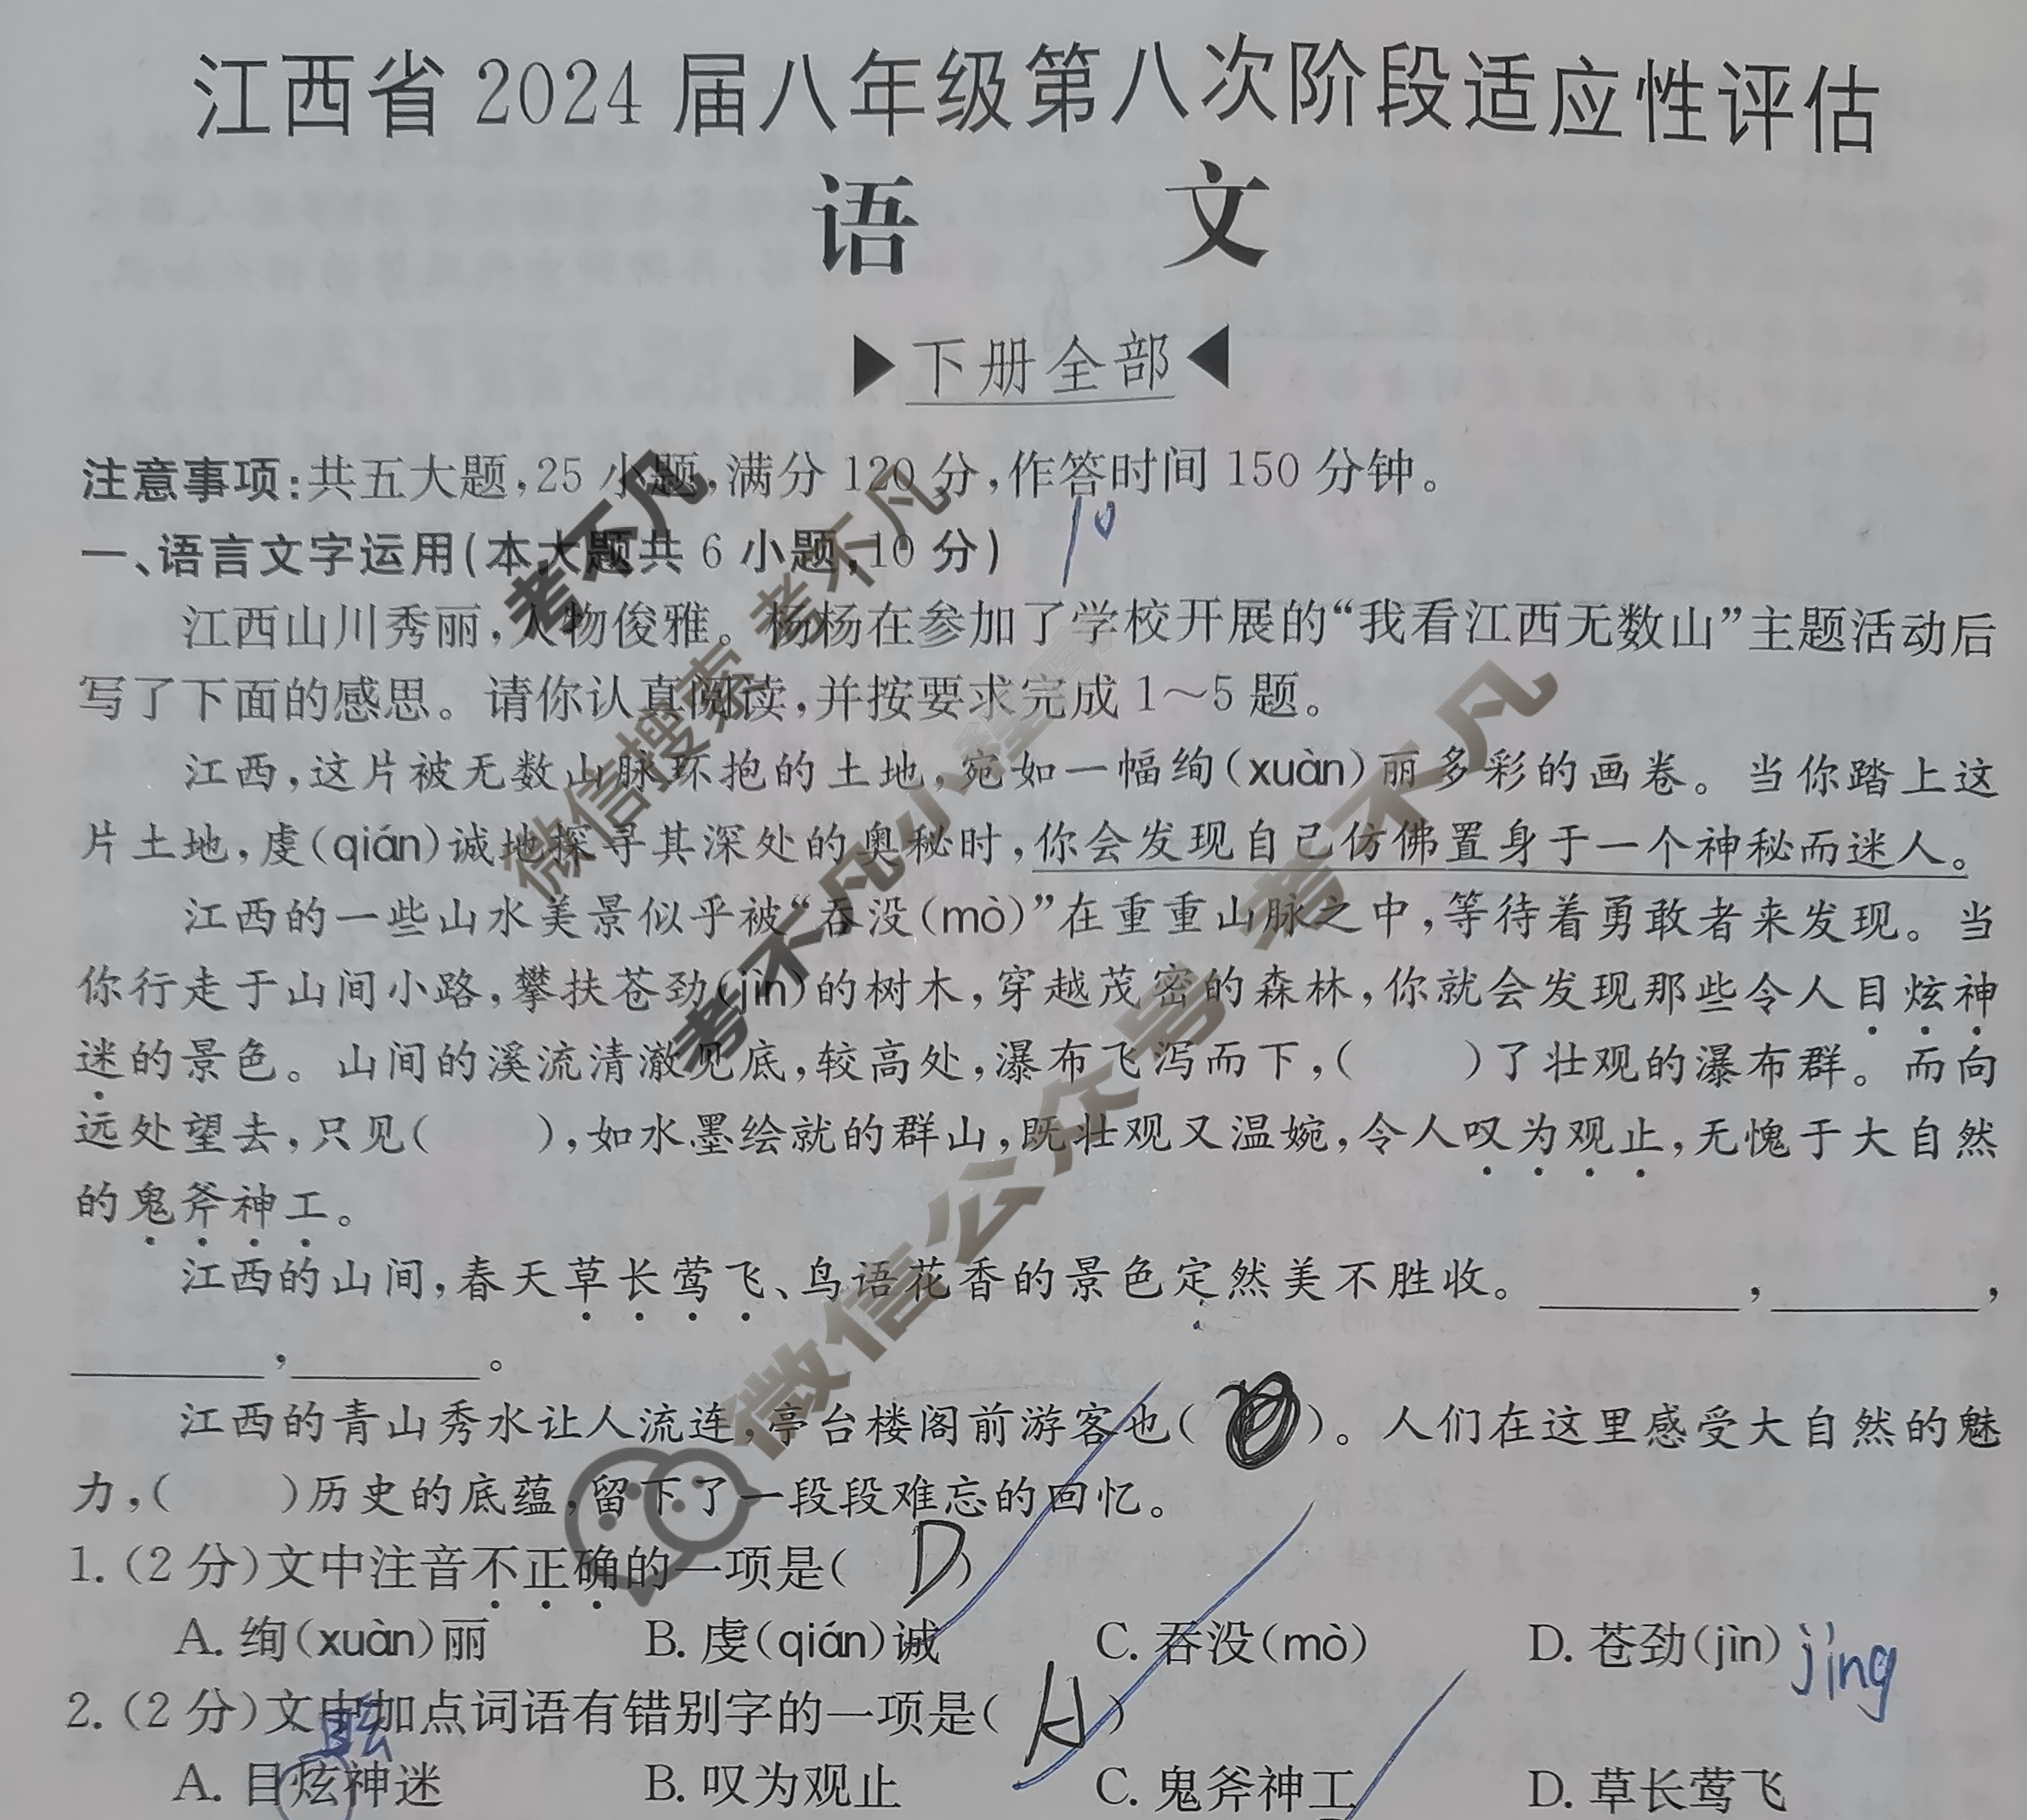 江西省 2024 届八年级第八次阶段适应性评估
语 文
▶下册全部◀
注意事项:共五大题,25 小题,满分 120 分,作答时间 150 分钟。
一、语言文字运用(本大题共 6 小题,10 分) 10
江西山川秀丽,人物俊雅。杨杨在参加了学校开展的“我看江西无数山”主题活动后
写了下面的感思。请你认真阅读,并按要求完成 1～5 题。
江西,这片被无数山脉环抱的土地,宛如一幅绚(xuàn)丽多彩的画卷。当你踏上这
片土地,虔(qián)诚地探寻其深处的奥秘时,你会发现自己仿佛置身于一个神秘而迷人。
江西的一些山水美景似乎被“吞没(mò)”在重重山脉之中,等待着勇敢者来发现。当
你行走于山间小路,攀扶苍劲(jìn)的树木,穿越茂密的森林,你就会发现那些令人目炫神
迷的景色。山间的溪流清澈见底,较高处,瀑布飞泻而下,( )了壮观的瀑布群。而向
远处望去,只见( ),如水墨绘就的群山,既壮观又温婉,令人叹为观止,无愧于大自然
的鬼斧神工。
江西的山间,春天草长莺飞、鸟语花香的景色定然美不胜收。________,________,
________,________。
江西的青山秀水让人流连,亭台楼阁前游客也( )。人们在这里感受大自然的魅
力,( )历史的底蕴,留下了一段段难忘的回忆。
1.(2 分)文中注音不正确的一项是( D )
A. 绚(xuàn)丽 B. 虔(qián)诚 C. 吞没(mò) D. 苍劲(jìn) jìng
2.(2 分)文中加点词语有错别字的一项是( A )
眩
A. 目炫神迷 B. 叹为观止 C. 鬼斧神工 D. 草长莺飞
考不凡
考不凡
微信搜索
考不凡小程序
微信公众号 考不凡